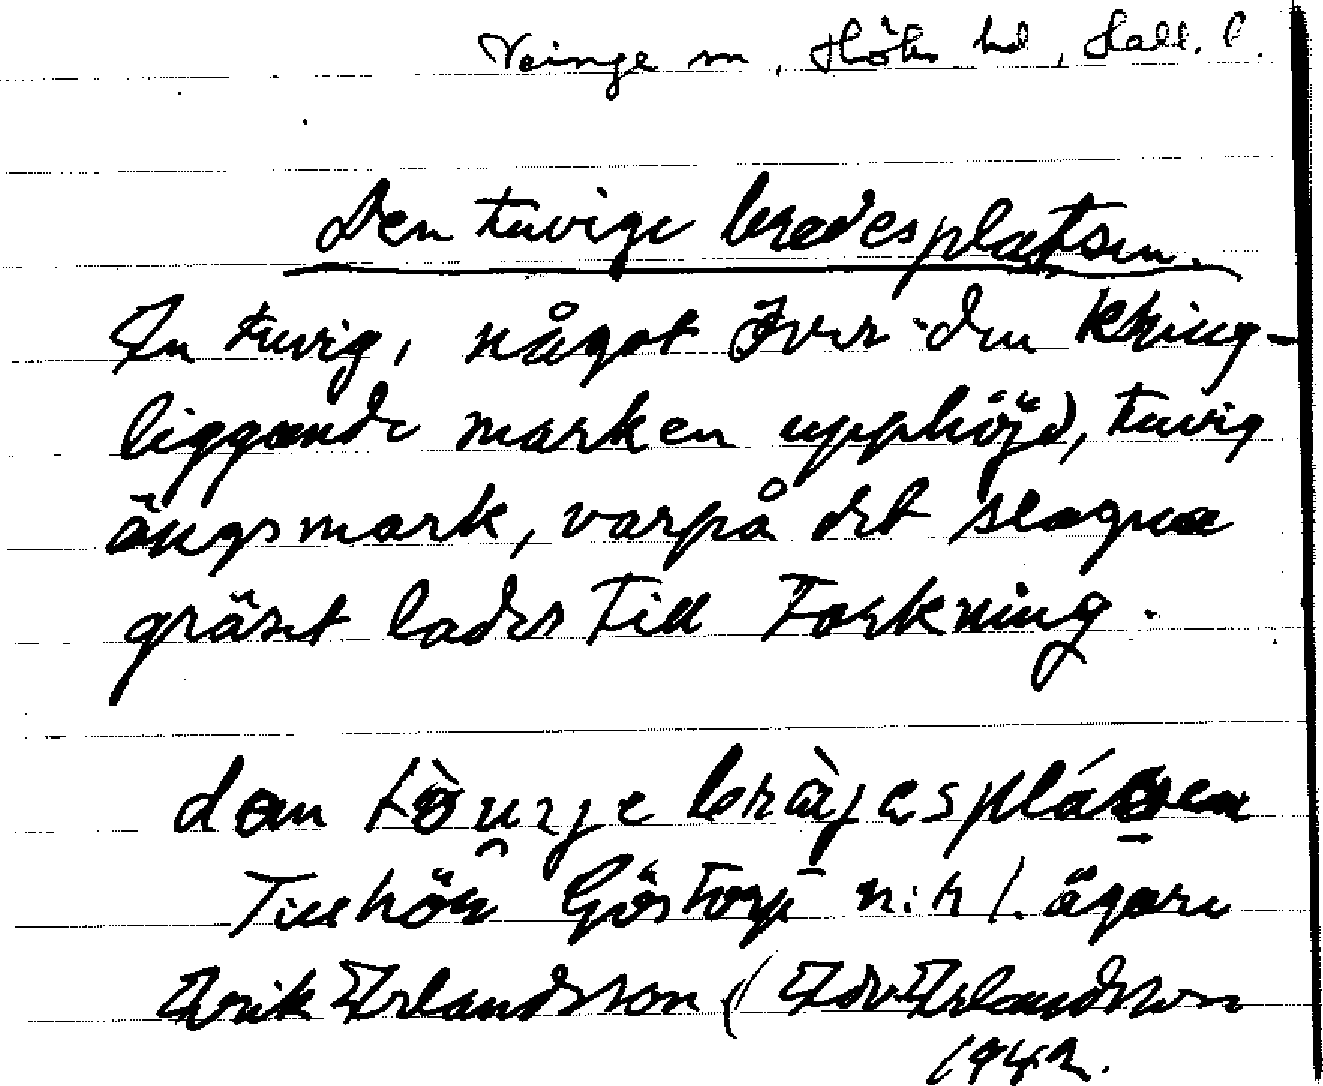 Veinge sn, Höks hd, Hall. l.
Den tuvige bredesplatsen.
En tuvig, något över den kring-
liggande marken upphöjd, tuvig
ängsmark, varpå det slagna
gräset lades till torkning.
Tillhör Göstorp n:r 1. ägare
Erik Erlandsson (Edv. Erlandsson
1942.